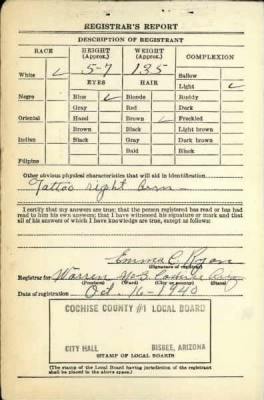 REGISTRAR'S REPORT
DESCRIPTION OF REGISTRANT
RACE HEIGHT (Approx.) WEIGHT (Approx.) COMPLEXION
White ✓ 5-7 135 Sallow
EYES HAIR Light ✓
Negro Blue ✓ Blonde Ruddy
Gray Red Dark
Oriental Hazel Brown ✓ Freckled
Brown Black Light brown
Indian Black Gray Dark brown
Bald Black
Filipino
Other obvious physical characteristics that will aid in identification
Tattoo right arm
I certify that my answers are true; that the person registered has read or has had read to him his own answers; that I have witnessed his signature or mark and that all of his answers of which I have knowledge are true, except as follows:
Emma C.
(Signature of registrar)
Registrar for Warren No 3 Cochise Ariz
(Precinct) (Ward) (City or county) (State)
Date of registration Oct. 16-1940
COCHISE COUNTY #1 LOCAL BOARD
CITY HALL BISBEE, ARIZONA
STAMP OF LOCAL BOARD
(The stamp of the Local Board having jurisdiction of the registrant shall be placed in the above space.)